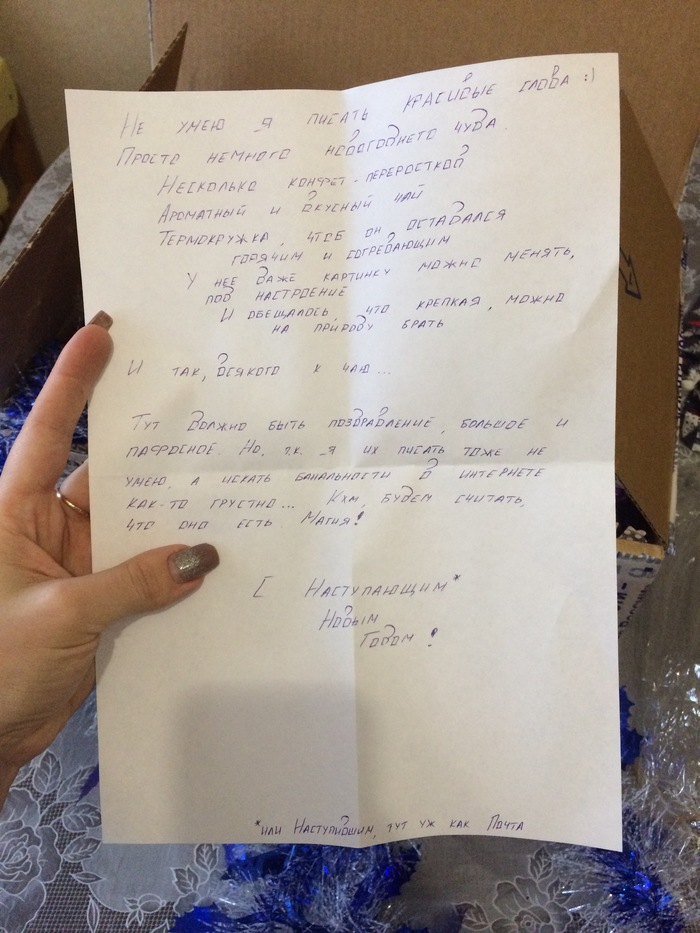 Не умею я писать красивые слова :)
Просто немного новогоднего чуда.
Несколько конфет-переростков
Ароматный и вкусный чай
Термокружка, чтоб он оставался
горячим и согревающим
У неё даже картинку можно менять,
под настроение
И обещалось, что крепкая, можно
на природу брать
И так, всякого к чаю...
Тут должно быть поздравление, большое и
пафосное. Но, т.к. я их писать тоже не
умею, а искать банальности в интернете
как-то грустно... Кхм, будем считать,
что оно есть. Магия!
С Наступающим*
Новым
Годом!
*или Наступившим, тут уж как Почта